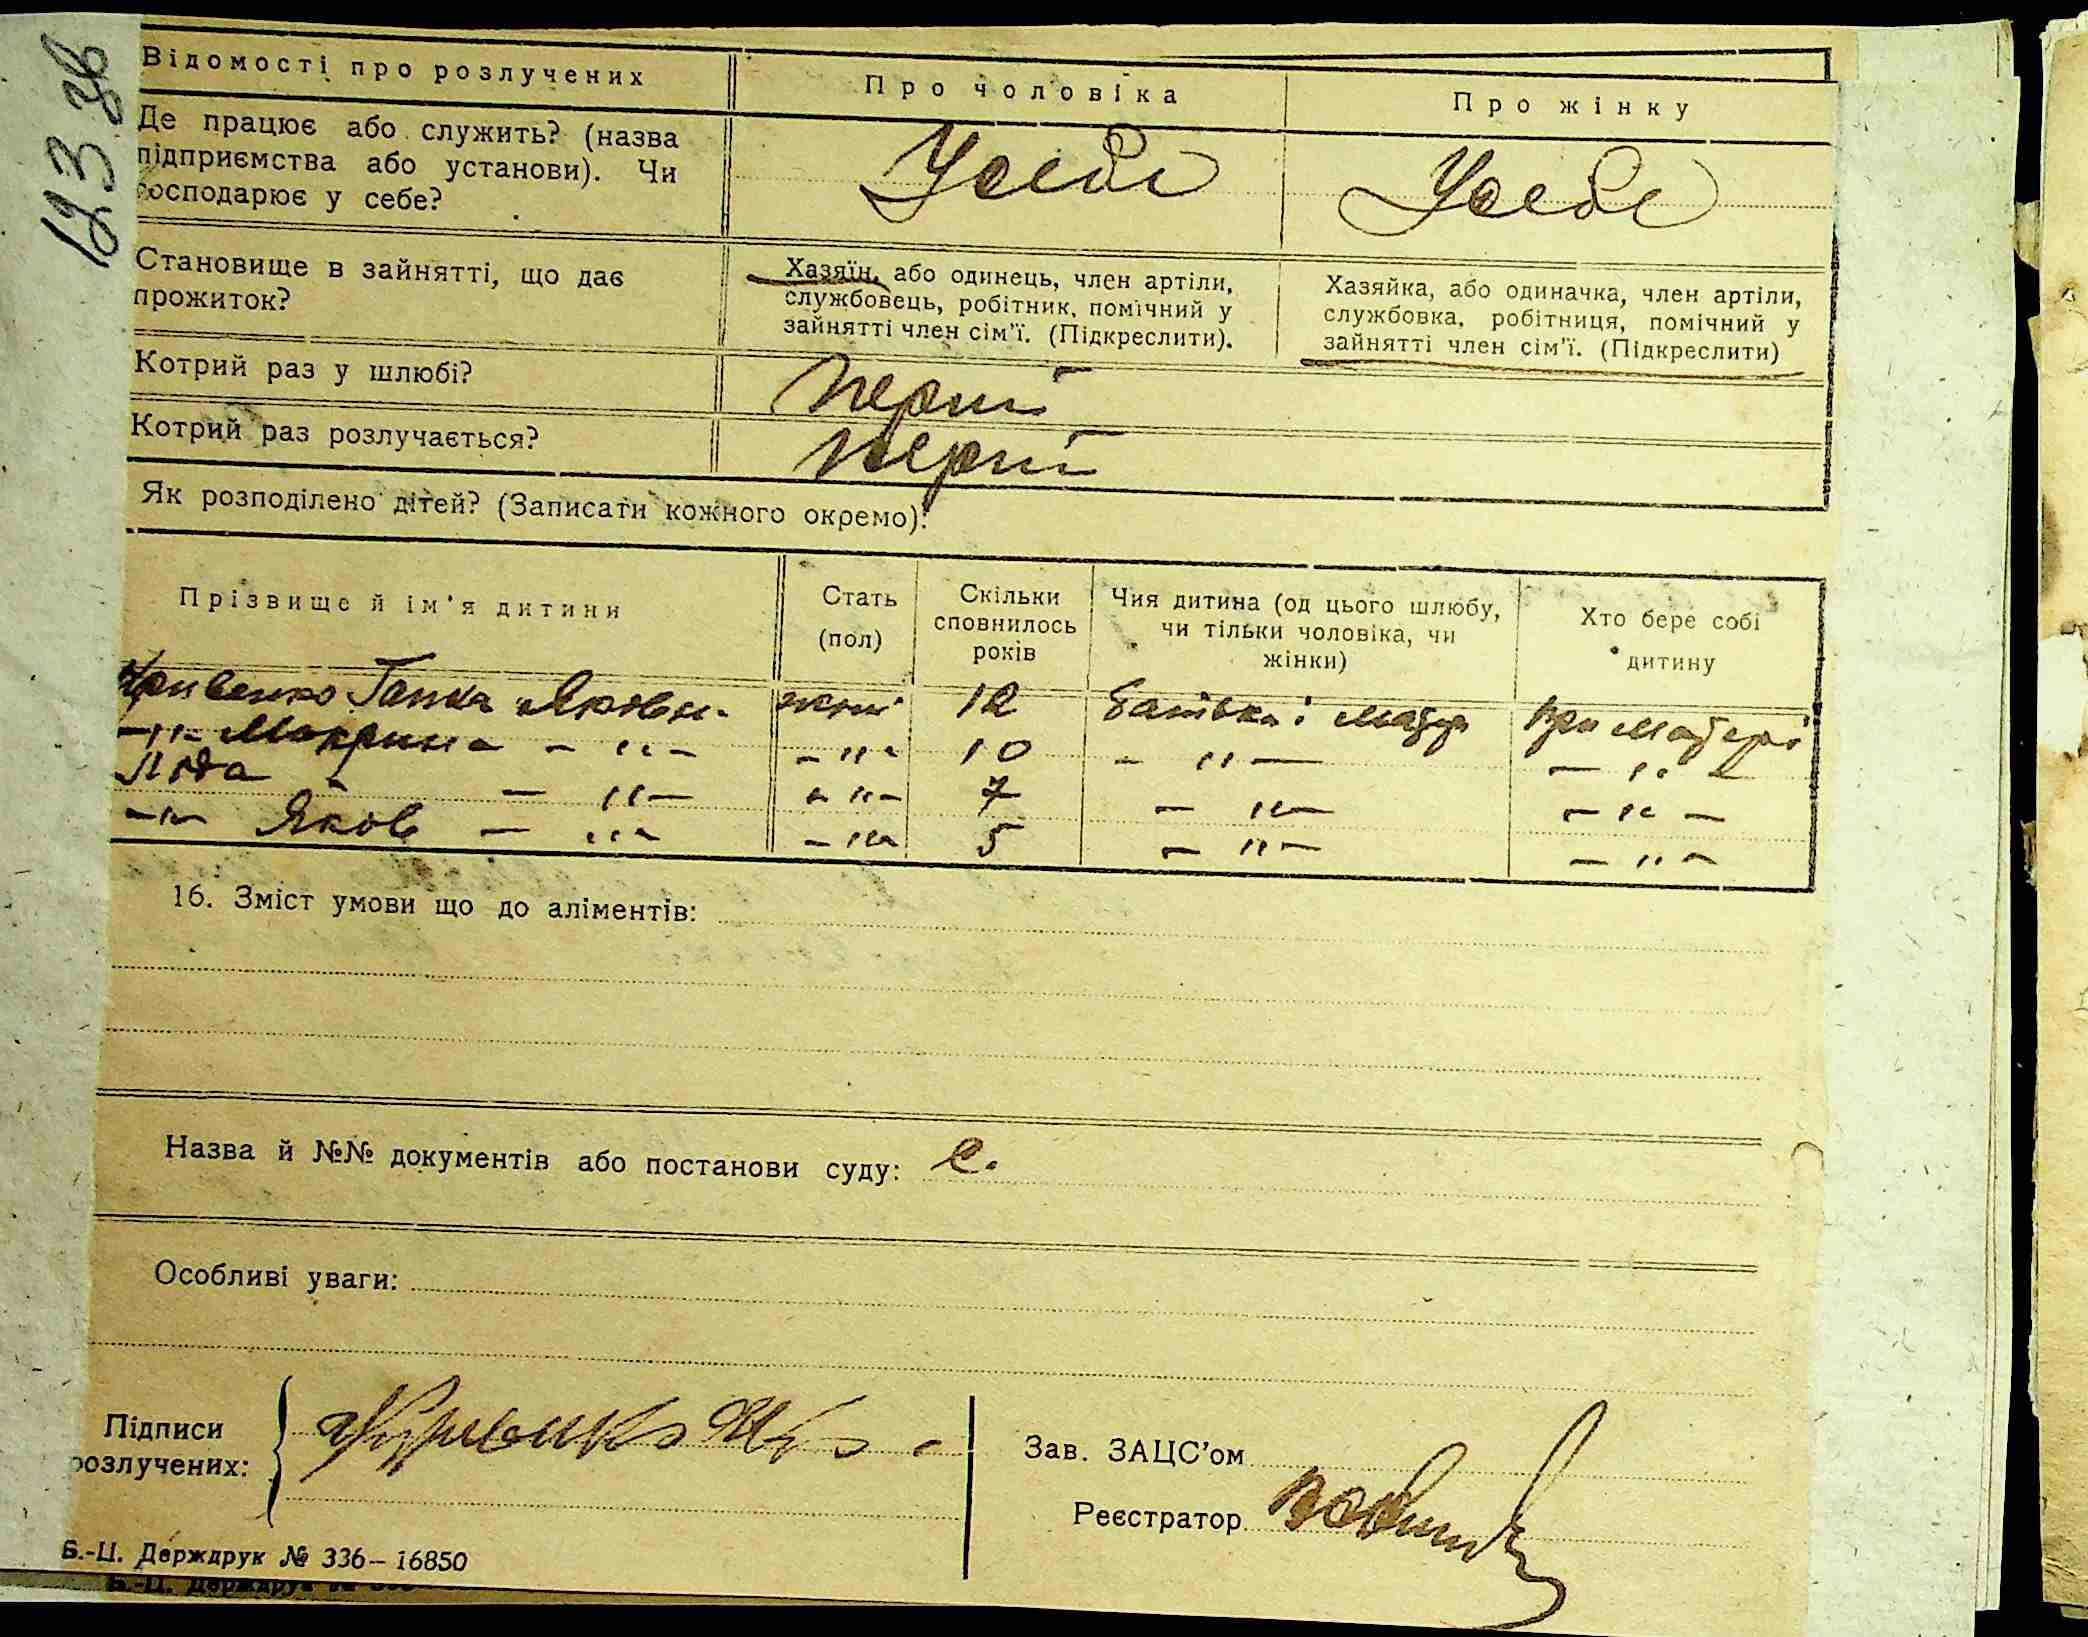 Відомості про розлучених
Про чоловіка
Про жінку
Де працює або служить? (назва
підприємства або установи). Чи
господарює у себе?
У себе
У себе
Становище в зайнятті, що дає
прожиток?
Хазяїн, або одинець, член артіли,
службовець, робітник, помічний у
зайнятті член сім'ї. (Підкреслити).
Хазяйка, або одиначка, член артіли,
службовка, робітниця, помічний у
зайнятті член сім'ї. (Підкреслити)
Котрий раз у шлюбі?
Котрий раз розлучається?
Як розподілено дітей? (Записати кожного окремо):
Прізвище й ім'я дитини
Стать
(пол)
Скільки
сповнилось
років
Чия дитина (од цього шлюбу,
чи тільки чоловіка, чи
жінки)
Хто бере собі
дитину
Кривенко Ганна Яковл. 12 Батька і при Матері
-"- Макрина - "- -"- 10 - " - - " -
- "- -"- 7 - "- - " -
-"- Яков - "- -"- 5 - "- - " -
16. Зміст умови що до аліментів:
Назва й №№ документів або постанови суду: є.
Особливі уваги:
Підписи
розлучених:
Зав. ЗАЦС'ом
Реєстратор
Б.-Ц. Держдрук № 336—16850